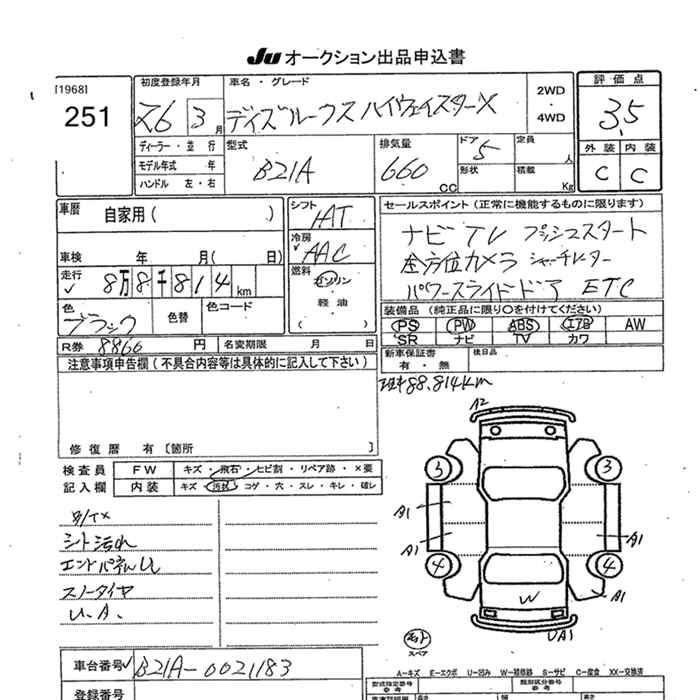 Ju オークション出品申込書
[1968]
251
初度登録年月
26 3月
車名・グレード
デイズルークス ハイウェイスターX
2WD
・
4WD
評価点
3.5
外装 内装
C C
ディーラー・並行
モデル年式 年
ハンドル 左・右
型式
B21A
排気量
660 CC
ドア
5
形状
定員
人
積載
Kg
車歴 自家用( )
車検 年 月( 日)
走行 8万8千814km
色
ブラック
色替
色コード
R券 8860円
名変期限 月 日
シフト
冷房
AAC
燃料
ガソリン
軽油
( )
セールスポイント(正常に機能するものに限ります)
ナビ TV プッシュスタート
全方位カメラ
パワースライドドア ETC
装備品(純正品に限り○を付けてください)
PS PW ABS エアB AW
SR ナビ TV カワ
新車保証書
有・無
後日品
88,814km
注意事項申告欄(不具合内容等は具体的に記入して下さい)
修復歴 有〔箇所 〕
検査員 FW キズ・飛石・ヒビ割・リペア跡・×要
記入欄 内装 キズ・汚れ・コゲ・穴・スレ・キレ・破レ
シート汚れ
エンドパネルU
スノータイヤ
U.A.
A2
5 3
A1
A1 A1
4 4
W A1
UA1
スペア
A-キズ E-エクボ U-凹み W-補修跡 S-サビ C-腐食 XX-交換済
車台番号 B21A-0021183
登録番号
型式指定番号
参考
類別区分番号
参考
長さ
幅
高さ